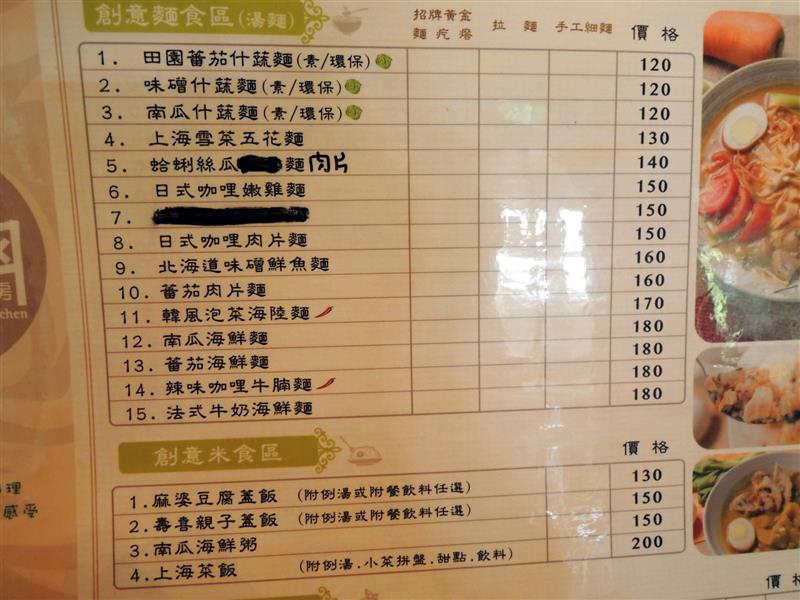 創意麵食區(湯麵)
招牌黃金麵疙瘩 拉麵 手工細麵 價格
1. 田園蕃茄什蔬麵(素/環保) 120
2. 味噌什蔬麵(素/環保) 120
3. 南瓜什蔬麵(素/環保) 120
4. 上海雪菜五花麵 130
5. 蛤蜊絲瓜 麵 肉片 140
6. 日式咖哩嫩雞麵 150
7. 150
8. 日式咖哩肉片麵 150
9. 北海道味噌鮮魚麵 160
10. 蕃茄肉片麵 160
11. 韓風泡菜海陸麵 170
12. 南瓜海鮮麵 180
13. 蕃茄海鮮麵 180
14. 辣味咖哩牛腩麵 180
15. 法式牛奶海鮮麵 180
創意米食區 價格
1. 麻婆豆腐蓋飯 (附例湯或附餐飲料任選) 130
2. 壽喜親子蓋飯 (附例湯或附餐飲料任選) 150
3. 南瓜海鮮粥 150
4. 上海菜飯 (附例湯.小菜拼盤.甜點.飲料) 200
房
chen
理
感受
價